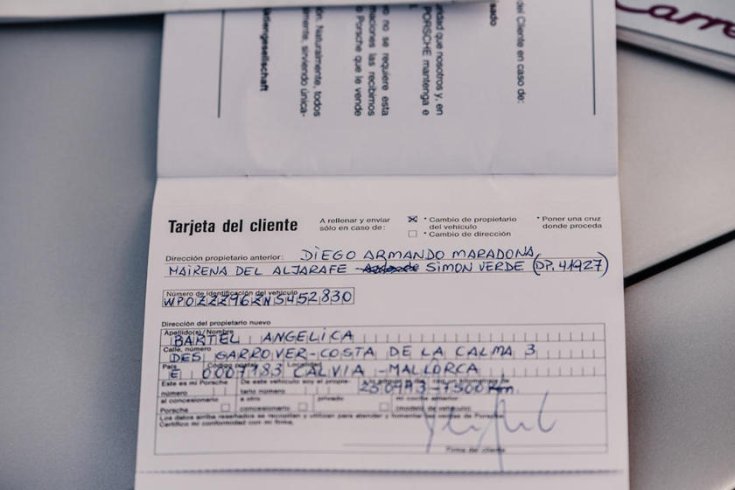 del Cliente en caso de:
uridad que nosotros y, en
PORSCHE mantenga e
vo no se requiere esta
maciones las recibimos
o Porsche que le vende
ón. Naturalmente, todos
lmente, sirviendo única-
ktiengesellschaft
Tarjeta del cliente
A rellenar y enviar
sólo en caso de:
* Cambio de propietario
del vehículo
* Cambio de dirección
* Poner una cruz
donde proceda
Dirección propietario anterior: DIEGO ARMANDO MARADONA
MAIRENA DEL ALJARAFE - SIMON VERDE (DP. 41927)
Número de identificación del vehículo
WPOZZZ96ZNS452830
Dirección del propietario nuevo
Apellido(s)/Nombre
BARTEL ANGELICA
Calle, número
DES GARROVER-COSTA DE LA CALMA 3
País
E 0007183 CALVIA -MALLORCA
Este es mi Porsche
número
al concesionario
Porsche
De este vehículo soy el propie-
tario número
a otro
concesionario
privado
mi coche anterior
(modelo de vehículo)
Los datos arriba reseñados se recopilan y utilizan para atender y fomentar
Certifico mi conformidad con mi firma.
Firma del cliente